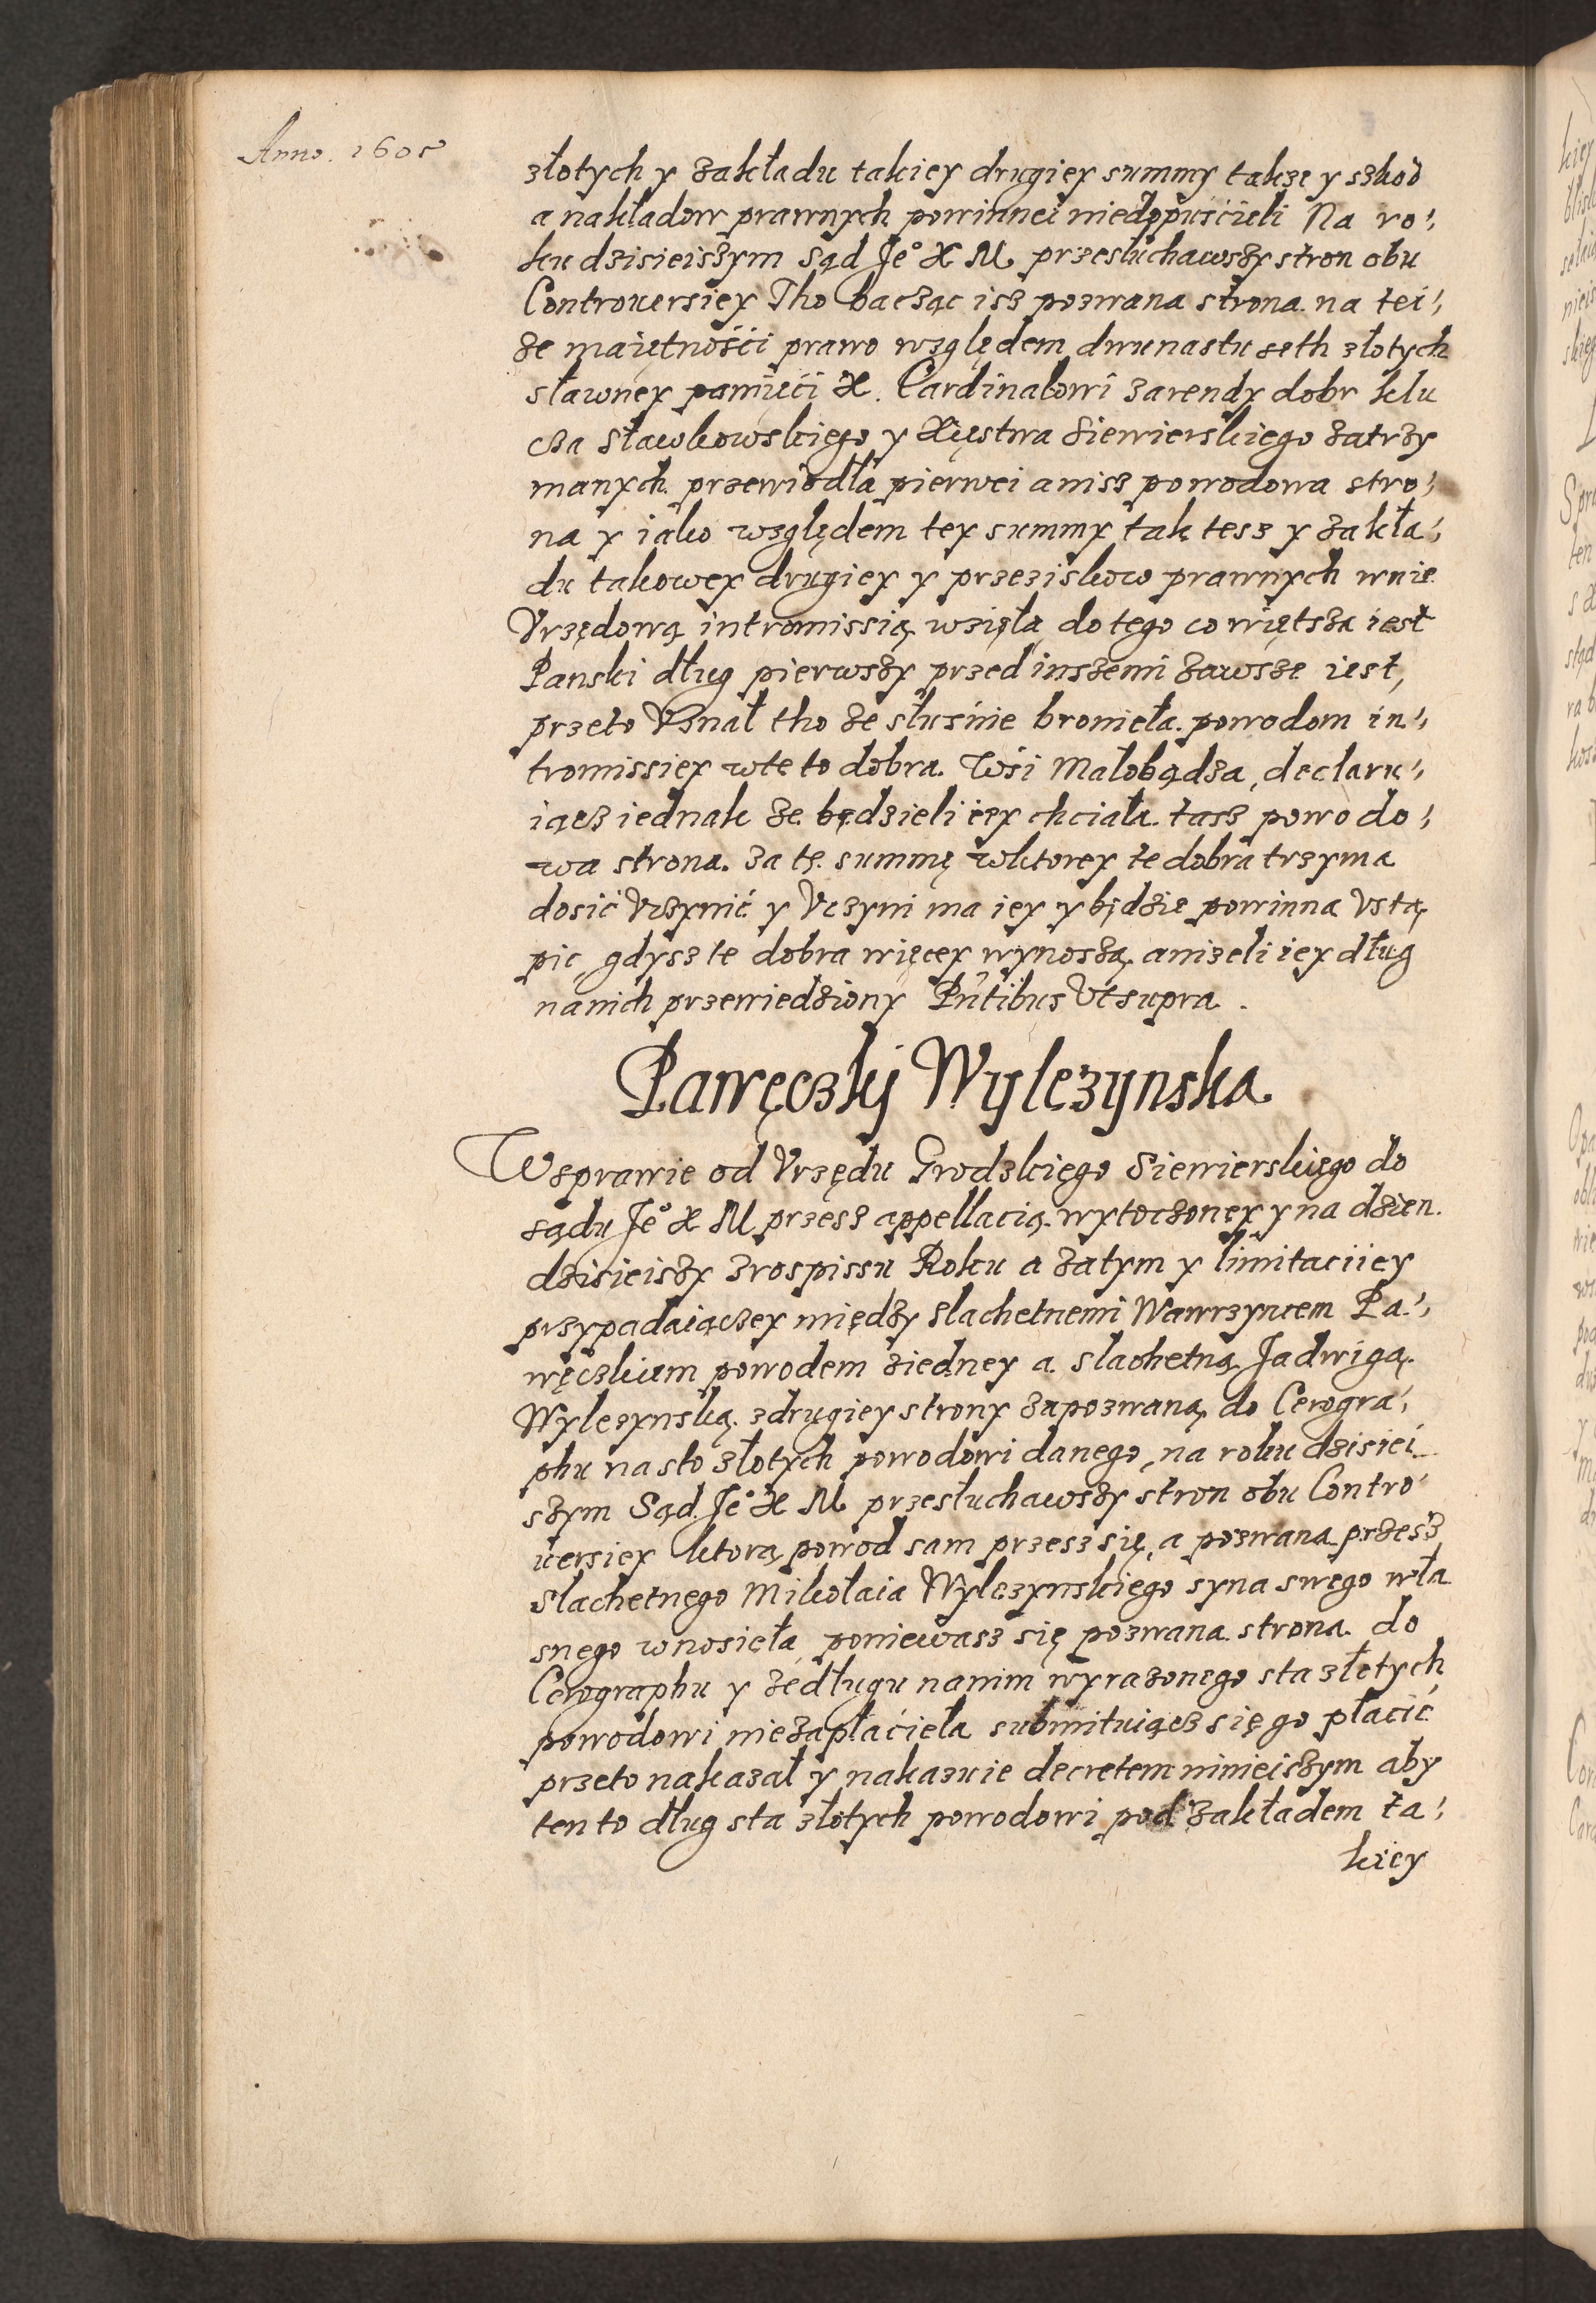 Anno. 1605
złotych y zakładu takiey drugiey summy takze y szkod
a nakładow prawnych powinnei niedopuscieli Na ro,,
ku dzisieiszym sąd Je° X M przesłuchawszy stron obu
Controuersiey Tho bacząc isz pozwana strona. na tei,,
ze maiętnośći prawo względem dwunastu seth złotych
sławney pamięći X. Cardinałowi zarendy dobr klu
cza Sławkowskięgo y Xięstwa Siewierskiego zatrzy
manych. przewiodła pierwei anisz powodowa stro,,
na y iako względem tey summy tak tesz y zakła,,
du takowey drugiey y przeziskow prawnych wnie
Vrzędową intromissią wzięła, do tego co więtsza iest
Panski dług pierwszy przed inszemi zawsze iest,
przeto Vznał tho ze słusnie bronieła. powodom in,,
tromissiey wte to dobra. Wśi Małobądza, declaru,,
iącz iednak ze będzieli iey chciała. tasz powodo,,
wa strona. za tę summę wktorey te dobra trzyma
dosić Vczynić y Vczyni ma iey y będzie powinna Vstą
pic, gdysz te dobra więcey wynoszą anizeli iey dług
nanich przewiedziony Pntibus Vtsupra.
Pawęczkij Wylezynska
Wsprawie od Vrzędu Grodzkięgo Siewierskięgo do
sądu Je° X M przesz appellacią wytoczoney y na dzien.
dzisieiszy zrospissu Roku a zatym y limitaciiey
przypadaiączey między slachetnemi Wawrzyncem Pa,,
węczkiem powodem ziedney a slachetną Jadwigą
Wylezynską zdrugiey strony zapozwaną, do Cerogra,,
phu na sto złotych powodowi danego, na roku dzisiei
szym Sąd Je° X M przesłuchawszy stron obu Contro
uersiey ktorą powod sam przesz się, a pozwana przesz
Slachetnego Mikołaia Wylezynskiego syna swego wła
snego wnosieła, poniewasz się pozwana strona do
Cerographu y ze długu nanim wyrazonego sta złotych
powodowi niezapłacieła submituiącz się go płacić
przeto nakazał y nakazuie decretem ninieiszym aby
ten to dług sta złotych powodowi pod zakładem ta,,
kiey